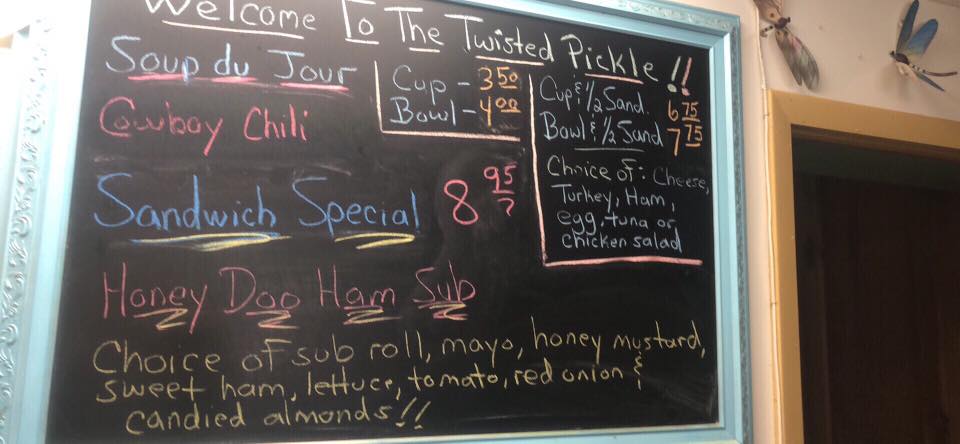 Welcome To The Twisted Pickle!!
Soup du Jour
Cowboy Chili
Cup - 3 50
Bowl - 4 00
Cup & 1/2 Sand. 6 75
Bowl & 1/2 Sand 7 75
Choice of: Cheese,
Turkey, Ham,
egg, tuna or
chicken salad
Sandwich Special 8 95
Honey Doo Ham Sub
Choice of sub roll, mayo, honey mustard,
sweet ham, lettuce, tomato, red onion &
candied almonds!!